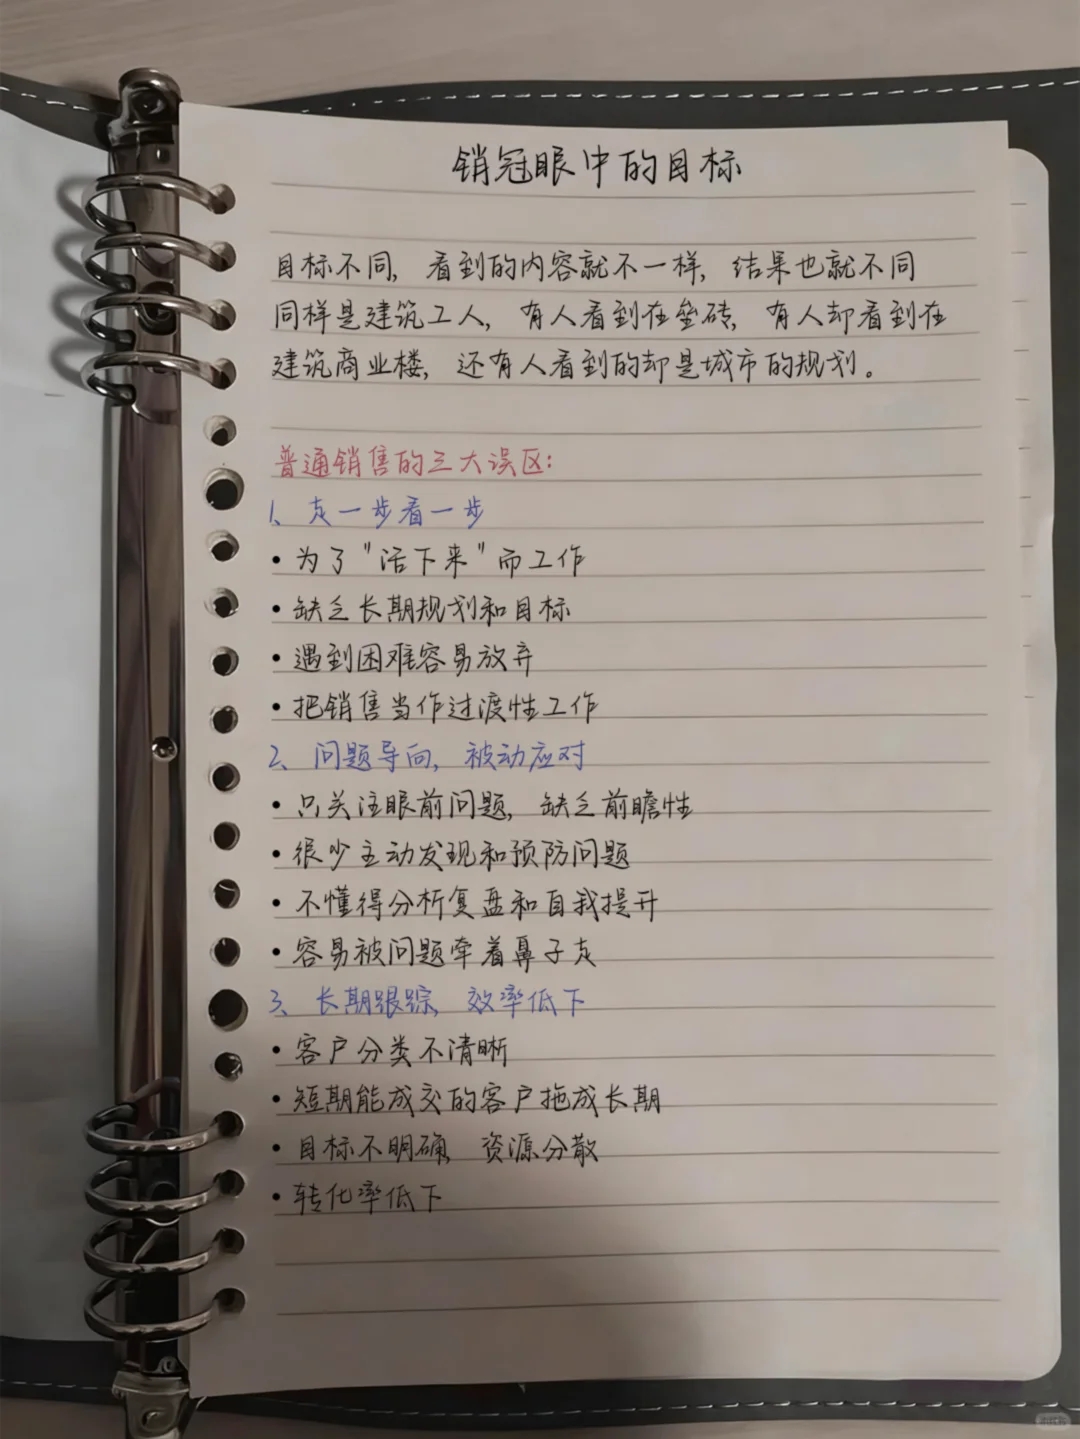 销冠眼中的目标
目标不同，看到的内容就不一样，结果也就不同
同样是建筑工人，有人看到在垒砖，有人却看到在
建筑商业楼，还有人看到的却是城市的规划。
普通销售的三大误区：
1、走一步看一步
• 为了"活下来"而工作
• 缺乏长期规划和目标
• 遇到困难容易放弃
• 把销售当作过渡性工作
2、问题导向，被动应对
• 只关注眼前问题，缺乏前瞻性
• 很少主动发现和预防问题
• 不懂得分析复盘和自我提升
• 容易被问题牵着鼻子走
3、长期跟踪，效率低下
• 客户分类不清晰
• 短期能成交的客户拖成长期
• 目标不明确，资源分散
• 转化率低下